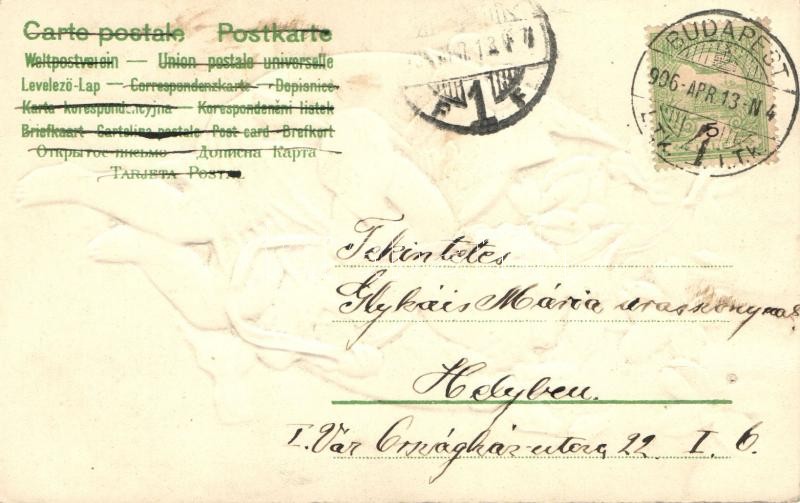 Carte postale Postkarte
Weltpostverein — Union postale universelle
Levelező-Lap — Correspondenzkarte — Dopisnice
Karta korespondencyjna — Korespondenční lístek
Briefkaart Cartolina postale Post card Brefkort
Открытое письмо — Дописна Карта
Tarjeta Postal
1
BUDAPEST
906·APR.13·N4
Tekintetes
Glykáis Mária urasszonynak
Helyben.
I. Vár Országház-utca 22 I 6.